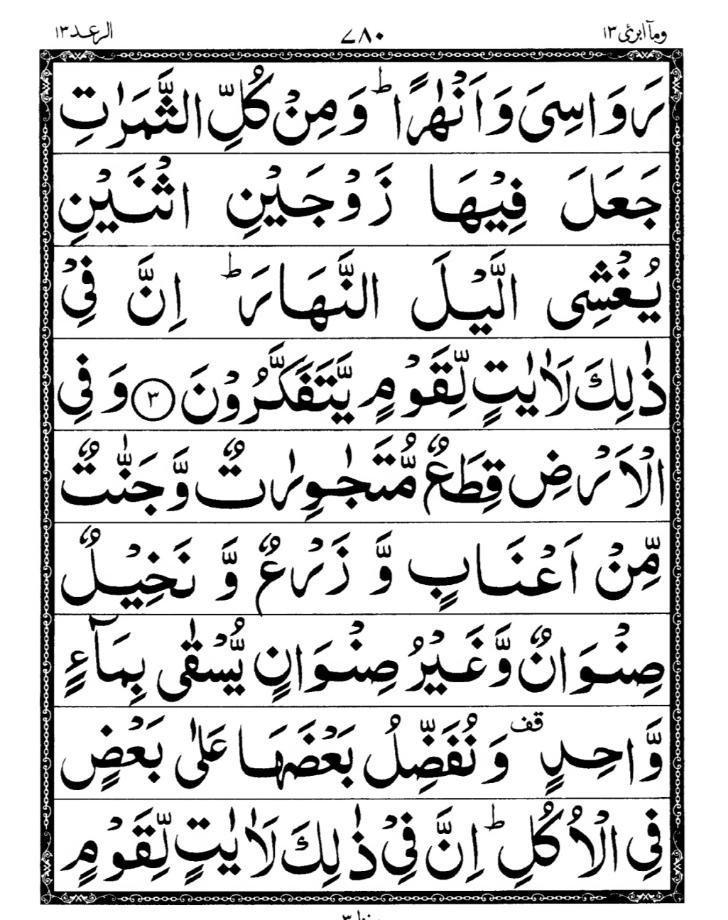 الرعد ١٣ ٧٨٠ ومآ ابرئ ١٣
رَوَاسِیَ وَاَنْهٰرًا ؕ وَمِنْ كُلِّ الثَّمَرٰتِ
جَعَلَ فِیْهَا زَوْجَیْنِ اثْنَیْنِ
یُغْشِی الَّیْلَ النَّهَارَ ؕ اِنَّ فِیْ
ذٰلِكَ لَاٰیٰتٍ لِّقَوْمٍ یَّتَفَكَّرُوْنَ ﴿۳﴾ وَفِی
الْاَرْضِ قِطَعٌ مُّتَجٰوِرٰتٌ وَّجَنّٰتٌ
مِّنْ اَعْنَابٍ وَّ زَرْعٌ وَّ نَخِیْلٌ
صِنْوَانٌ وَّغَیْرُ صِنْوَانٍ یُّسْقٰی بِمَآءٍ
وَّاحِدٍ قف وَنُفَضِّلُ بَعْضَهَا عَلٰی بَعْضٍ
فِی الْاُكُلِ ؕ اِنَّ فِیْ ذٰلِكَ لَاٰیٰتٍ لِّقَوْمٍ